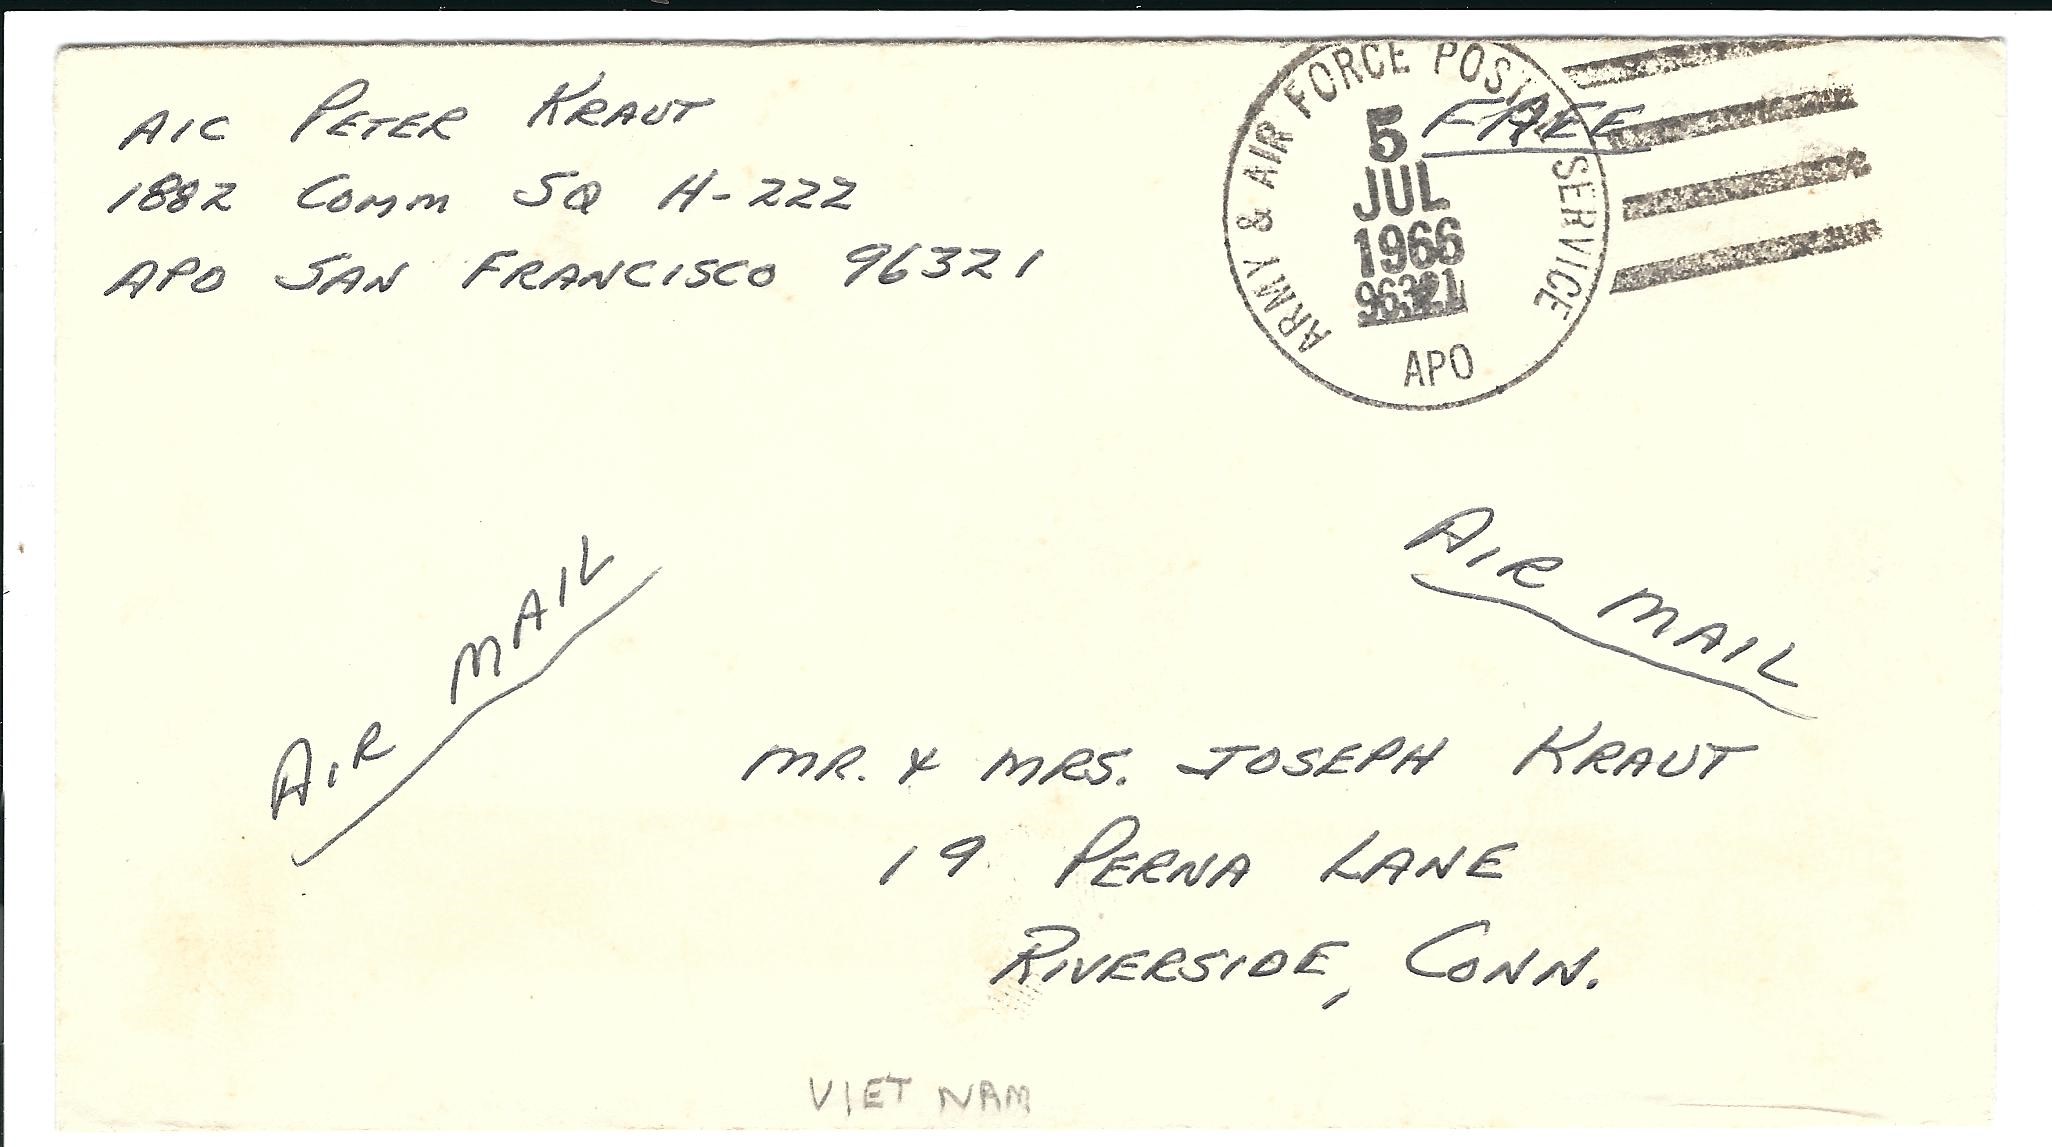 A1C PETER KRAUT
1882 COMM SQ H-222
APO SAN FRANCISCO 96321
ARMY & AIR FORCE POSTAL SERVICE
FREE
5
JUL
1966
96321
APO
AIR MAIL
AIR MAIL
MR. & MRS. JOSEPH KRAUT
19 PERNA LANE
RIVERSIDE, CONN.
VIET NAM